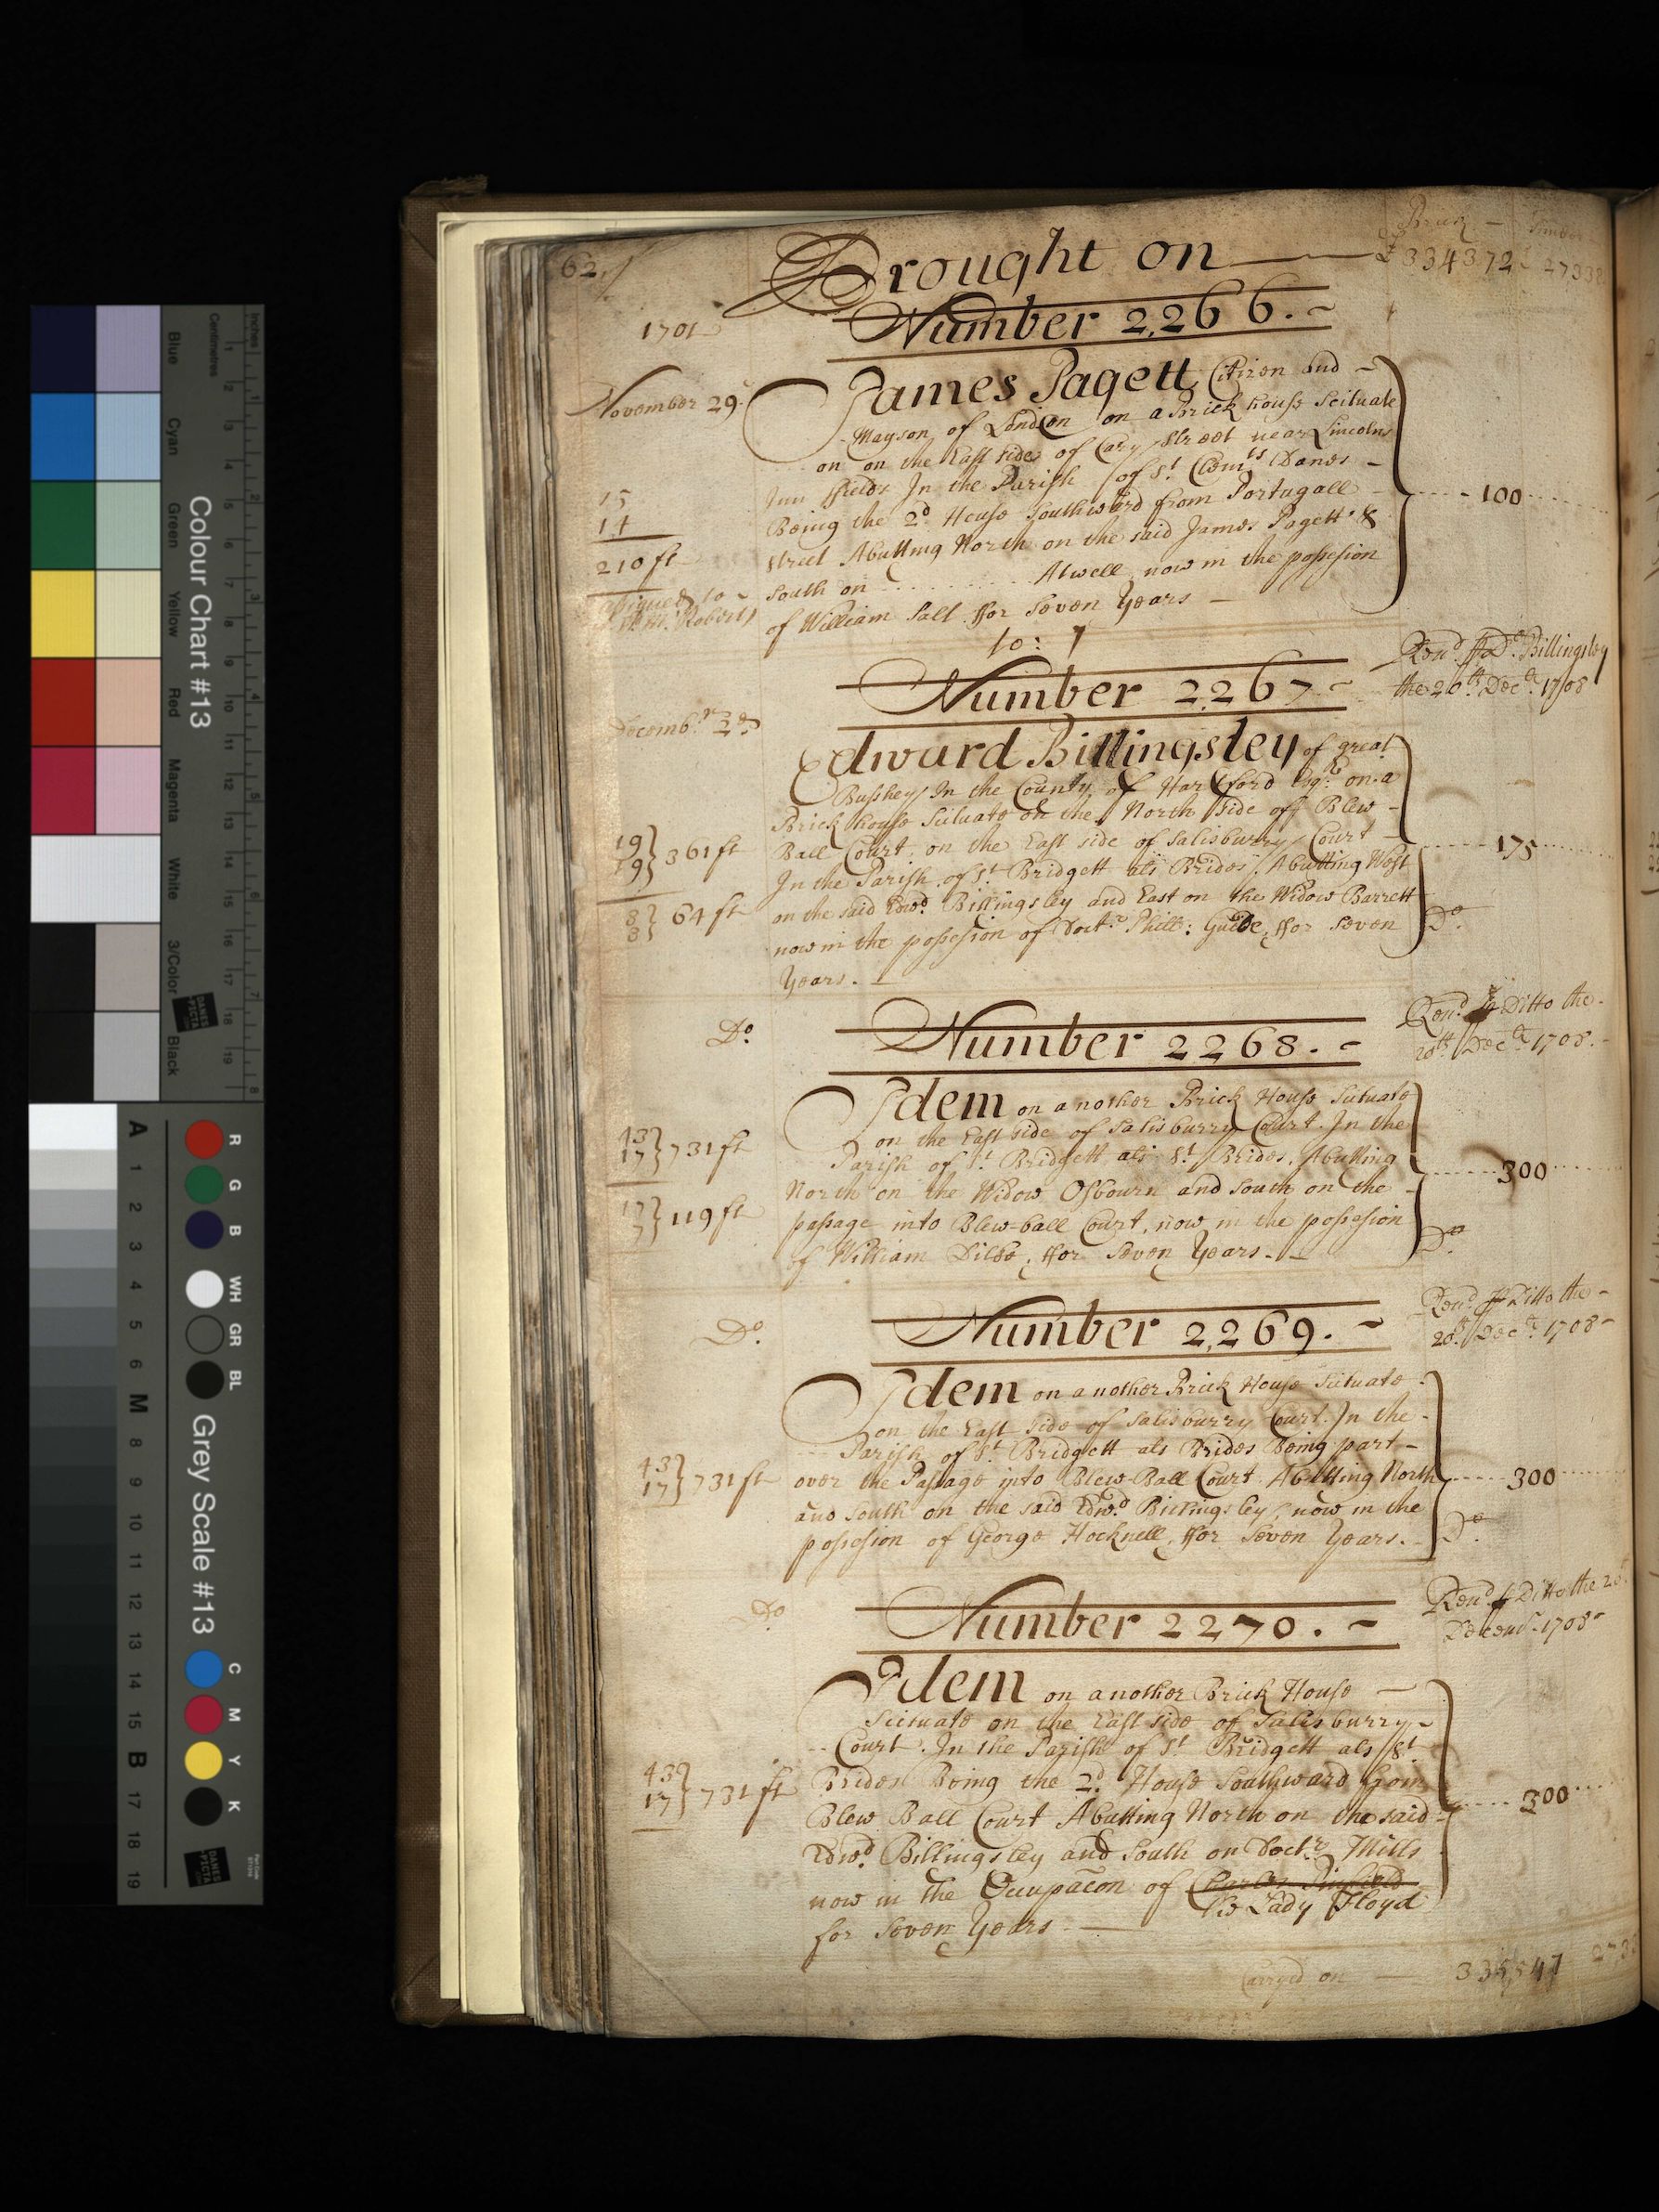 62
Brought on
Brick
£ 334372
1701
Number 2266.
November 29.
James Pagett Citizen and
Mayson of London on a Brick house Scituate
on on the East side of Cary Street near Lincolns
Inn ffields In the Parish of St Clemts Danes
Being the 2d House Southward from Portugall
Street Abutting North on the said James Pagett &
South on .......... Atwell now in the possesion
of William Salt ffor Seven Years
to: 7
15
14
210 ft
assigned to
100
Number 2267
Decembr 2d
Rend Do Billingsley
the 20th Decr 1708
Edward Billingsley of great
Busshey In the County of Hartford Esqr on a
Brick house Scituate on the North Side off Blew
Ball Court on the East side of Salisburry Court
In the Parish of St Bridgett als Brides Abutting West
on the said Edwd Billingsley and East on the Widow Barrett
now in the possesion of Doctr Phill: Guide, ffor Seven
Years.
19
19} 361 ft
8
8} 64 ft
175
Do
Do
Number 2268.
Rend Ditto the
20th Decr 1708.
Idem on another Brick House Scituate
on the East side of Salisburry Court. In the
Parish of St Bridgett als St Brides. Abutting
North on the Widow Osbourn and South on the
passage into Blew-ball Court, now in the possesion
of William Dilke, ffor Seven Years.
43
17} 731 ft
17
7} 119 ft
300
Do
Do
Number 2269.
Rend Ditto the
20th Decr 1708
Idem on another Brick House Scituate
on the East Side of Salisburry Court. In the
Parish of St Bridgett als Brides Being part
over the Passage into Blew-Ball Court. Abutting North
and South on the said Edwd Billingsley, now in the
possesion of George Hocknell, ffor Seven Years.
43
17} 731 ft
300
Do
Do
Number 2270.
Rend Ditto the 20
Decemr 1708
Idem on another Brick House
Scituate on the East side of Salisburry
Court. In the Parish of St Bridgett als St
Brides Being the 2d House Southward from
Blew Ball Court Abutting North on the said
Edwd Billingsley and South on Doctr Mills
now in the Occupacon of Charles
the Lady Floyd
for Seven Years
43
17} 731 ft
300
Carryed on
335,547
Colour Chart #13
Blue
Cyan
Green
Yellow
Red
Magenta
White
3/Color
Black
Centimetres
Inches
Grey Scale #13
R G B WH GR BL
C M Y K
A 1 2 3 4 5 6 M 8 9 10 11 12 13 14 15 B 17 18 19
DANES PICTA